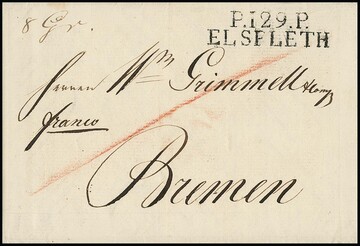 8 Gr.
P.129.P.
ELSFLETH
Herren Wm Grimmell & Comp
franco
Bremen